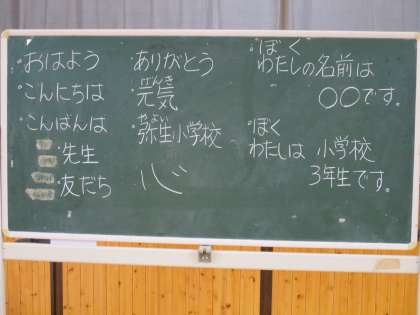 ・おはよう
・こんにちは
・こんばんは
・先生
・友だち
・ありがとう
げんき
・元気
やよい
・弥生小学校
心
・ぼく
わたしの名前は
〇〇です。
・ぼく
わたしは 小学校
3年生です。